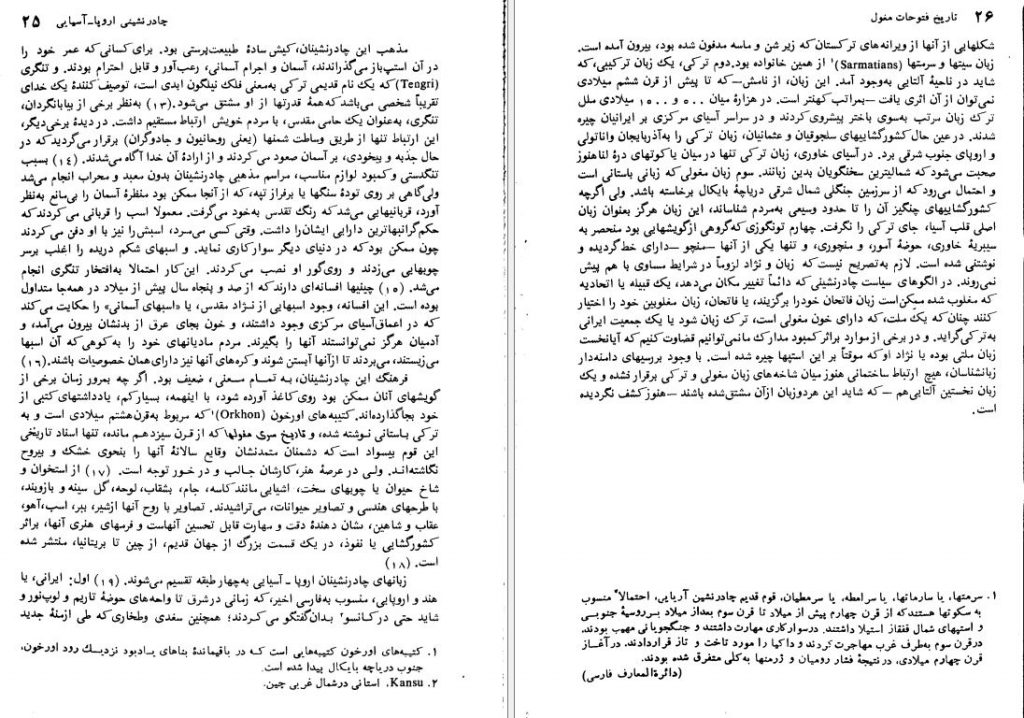 چادرنشینی اروپا-آسیایی ۲۵
مذهب این چادرنشینان، کیش سادهٔ طبیعت‌پرستی بود. برای کسانی که عمر خود را
در آن استپ‌باز می‌گذراندند، آسمان و اجرام آسمانی، رعب‌آور و قابل احترام بودند. و تنگری
(Tengri) که یک نام قدیمی ترکی به‌معنی فلک نیلگون ابدی است، توصیف‌کنندهٔ یک خدای
تقریباً شخصی می‌باشد که همهٔ قدرتها از او مشتق می‌شود. (۱۳) به‌نظر برخی از بیابانگردان،
تنگری، به‌عنوان یک حامی مقدس، با مردم خویش ارتباط مستقیم داشت. در دیدهٔ برخی‌دیگر،
این ارتباط تنها از طریق وساطت شمنها (یعنی روحانیون و جادوگران) برقرار می‌گردید که در
حال جذبه و بیخودی، بر آسمان صعود می‌کردند و از ارادهٔ آن خدا آگاه می‌شدند. (۱۴) بسبب
تنگدستی و کمبود لوازم مناسب، مراسم مذهبی چادرنشینان بدون معبد و محراب انجام می‌شد
ولی‌گاهی بر روی تودهٔ سنگها یا برفراز تپه، که از آنجا ممکن بود منظرهٔ آسمان را بی‌مانع به‌نظر
آورد، قربانیهایی می‌شد که رنگ تقدس به‌خود می‌گرفت. معمولا اسب را قربانی می‌کردند که
حکم گرانبهاترین دارایی ایشان‌را داشت. وقتی کسی می‌مرد، اسبش را نیز با او دفن می‌کردند
چون ممکن بود که در دنیای دیگر سوارکاری نماید. و اسبهای شکم دریده را اغلب برسر
چوبهایی می‌زدند و روی‌گور او نصب می‌کردند. این‌کار احتمالا به‌افتخار تنگری انجام
می‌شد. (۱۵) چینیها افسانه‌ای دارند که از صد و پنجاه سال پیش از میلاد در همه‌جا متداول
بوده است. این افسانه، وجود اسبهایی از نژاد مقدس، یا «اسبهای آسمانی» را حکایت می‌کند
که در اعماق آسیای مرکزی وجود داشتند، و خون بجای عرق از بدنشان بیرون می‌آمد، و
آدمیان هرگز نمی‌توانستند آنها را بگیرند. مردم مادیانهای خود را به‌کوهی که آن اسبها
می‌زیستند، می‌بردند تا ازآنها آبستن شوند و کره‌های آنها نیز دارای همان خصوصیات باشند. (۱۶)
فرهنگ این چادرنشینان، به تمام معنی، ضعیف بود. اگر چه بمرور زمان برخی از
گویشهای آنان ممکن بود روی کاغذ آورده شود، با اینهمه، بسیارکم، یادداشتهای کتبی از
خود بجا گذارده‌اند. کتیبه‌های اورخون (Orkhon)۱ که مربوط به‌قرن‌هشتم میلادی است و به
ترکی باستانی نوشته شده، و تاریخ سری مغولها که از قرن سیزدهم مانده، تنها اسناد تاریخی
این قوم بیسواد است که دشمنان متمدنشان وقایع سالانهٔ آنها را بنحوی خشک و بیروح
نگاشته‌اند. ولی در عرصهٔ هنر، کارشان جالب و در خور توجه است. (۱۷) از استخوان و
شاخ حیوان یا چوبهای سخت، اشیایی مانند کاسه، جام، بشقاب، لوحه، گل سینه و بازوبند،
با طرحهای هندسی و تصاویر حیوانات، می‌تراشیدند. تصاویر با روح آنها ازشیر، ببر، اسب، آهو،
عقاب و شاهین، نشان دهندهٔ دقت و مهارت قابل تحسین آنهاست و فرمهای هنری آنها، براثر
کشورگشایی یا نفوذ، در یک قسمت بزرگ از جهان قدیم، از چین تا بریتانیا، منتشر شده
است. (۱۸)
زبانهای چادرنشینان اروپا - آسیایی به‌چهار طبقه تقسیم می‌شوند. (۱۹) اول: ایرانی، یا
هند و اروپایی، منسوب به‌فارسی اخیر، که زمانی درشرق تا واحه‌های حوضهٔ تاریم و لوپ‌نور و
شاید حتی در کانسو۲ بدان گفتگو می‌کردند؛ همچنین سغدی وطخاری که طی ازمنهٔ جدید
۱. کتیبه‌های اورخون کتیبه‌هایی است که در باقیماندهٔ بناهای یادبود نزدیک رود اورخون،
جنوب دریاچه بایکال پیدا شده است.
۲. Kansu. استانی درشمال غربی چین.
۲۶ تاریخ فتوحات مغول
شکلهایی از آنها از ویرانه‌های ترکستان که زیر شن و ماسه مدفون شده بود، بیرون آمده است.
زبان سیتها و سرمتها (Sarmatians)۱ از همین خانواده بود. دوم ترکی، یک زبان ترکیبی، که
شاید در ناحیهٔ آلتایی به‌وجود آمد. این زبان، از نامش—که تا پیش از قرن ششم میلادی
نمی‌توان از آن اثری یافت—بمراتب کهنتر است. در هزارهٔ میان ۵۰۰ و ۱۵۰۰ میلادی ملل
ترک زبان مرتب به‌سوی باختر پیشروی کردند و در سراسر آسیای مرکزی بر ایرانیان چیره
شدند. درعین حال کشورگشاییهای سلجوقیان و عثمانیان، زبان ترکی را به‌آذربایجان واناتولی
و اروپای جنوب شرقی برد. در آسیای خاوری، زبان ترکی تنها درمیان یاکوتهای درهٔ لناهنوز
صحبت می‌شود که شمالیترین سخنگویان بدین زبانند. سوم زبان مغولی که زبانی باستانی است
و احتمال می‌رود که از سرزمین جنگلی شمال شرقی دریاچهٔ بایکال برخاسته باشد. ولی اگرچه
کشورگشاییهای چنگیز آن را تا حدود وسیعی به‌مردم شناساند، این زبان هرگز بعنوان زبان
اصلی قلب آسیا، جای ترکی را نگرفت. چهارم تونگوزی که‌گروهی ازگویشهایی بود منحصر به
سیبریهٔ خاوری، حوضهٔ آمور، و منچوری، و تنها یکی از آنها —منچو—دارای خط‌گردیده و
نوشتنی شده است. لازم به‌تصریح نیست که زبان و نژاد لزوماً در شرایط مساوی با هم پیش
نمی‌روند. در الگوهای سیاست چادرنشینی که دائماً تغییر مکان می‌دهد، یک قبیله یا اتحادیه
که مغلوب شده ممکن‌است زبان فاتحان خودرا برگزیند، یا فاتحان، زبان مغلوبین خود را اختیار
کنند چنان که یک ملت، که دارای خون مغولی است، ترک زبان شود یا یک جمعیت ایرانی
به‌ترکی‌گراید. و در برخی از موارد براثر کمبود مدارک مانمی‌توانیم قضاوت کنیم که آیانخست
زبان ملتی بوده یا نژاد او که موقتاً بر این استپها چیره شده است. با وجود بررسیهای دامنه‌دار
زبانشناسان، هیچ ارتباط ساختمانی هنوز میان شاخه‌های زبان مغولی و ترکی برقرار نشده و یک
زبان نخستین آلتایی‌هم — که شاید این هردوزبان ازآن مشتق‌شده باشند —هنوز کشف نگردیده
است.
۱. سرمتها، یا سارماتها، یا سرامطه، یا سرمطیان، قوم قدیم چادرنشین آریایی، احتمالاً منسوب
به سکوتها هستند که از قرن چهارم پیش از میلاد تا قرن سوم بعداز میلاد بر روسیهٔ جنوبی
و استپهای شمال قفقاز استیلا داشتند. درسوارکاری مهارت داشتند و جنگجویانی مهیب بودند.
درقرن سوم به‌طرف غرب مهاجرت کردند و داکیا را مورد تاخت و تاز قراردادند. درآغاز
قرن چهارم میلادی، درنتیجهٔ فشار رومیان و ژرمنها به‌کلی متفرق شده بودند.
(دائرةالمعارف فارسی)